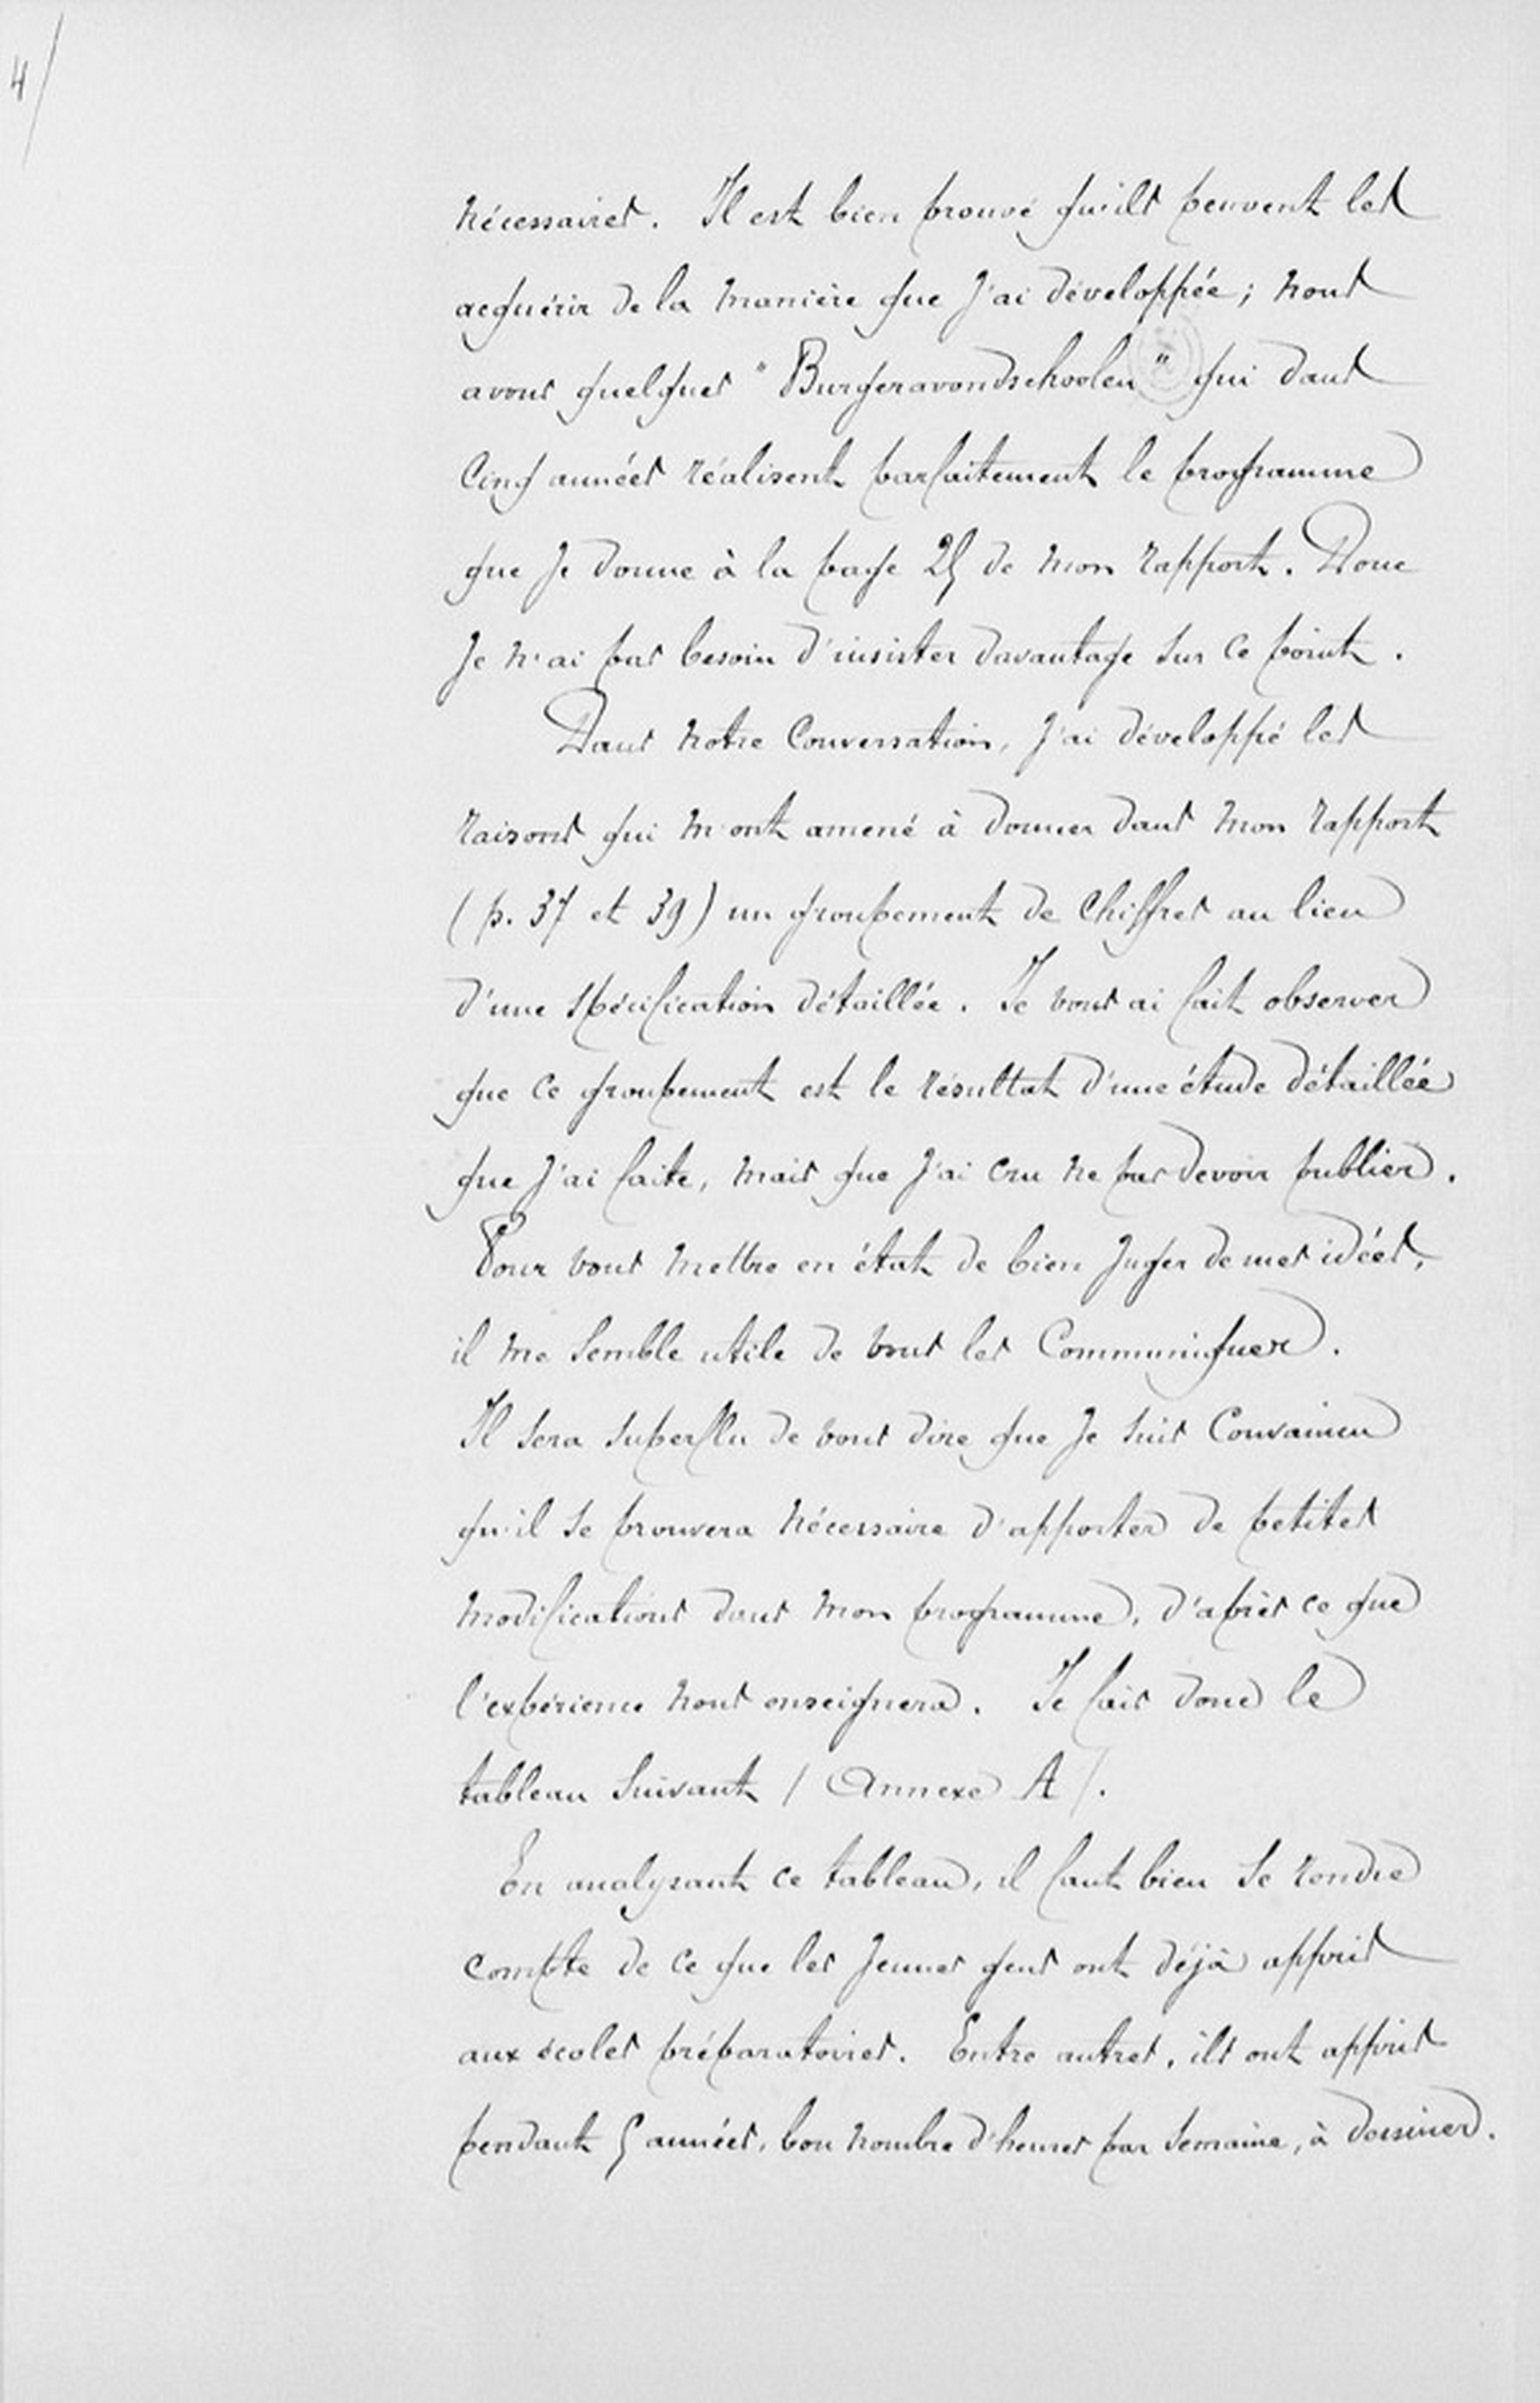 4/
nécessaires. Il est bien prouvé qu'ils peuvent les
acquérir de la manière que j'ai développée; nous
avons quelques "Burgeravondschoolen" qui dans
cinq années réalisent parfaitement le programme
que je donne à la page 25 de mon rapport. Donc
je n'ai pas besoin d'insister davantage sur ce point.
Dans notre conversation, j'ai développé les
raisons qui m'ont amené à donner dans mon rapport
(p. 37 et 39) un groupement de chiffres au lieu
d'une spécification détaillée. Je vous ai fait observer
que ce groupement est le résultat d'une étude détaillée
que j'ai faite, mais que j'ai cru ne pas devoir publier.
Pour vous mettre en état de bien juger de mes idées,
il me semble utile de vous les communiquer.
Il sera superflu de vous dire que je suis convaincu
qu'il se trouvera nécessaire d'apporter de petites
modifications dans mon programme, d'après ce que
l'expérience nous enseignera. Je fais donc le
tableau suivant / Annexe A /.
En analysant ce tableau, il faut bien se rendre
compte de ce que les jeunes gens ont déjà appris
aux écoles préparatoires. Entre autres, ils ont appris
pendant 5 années, bon nombre d'heures par semaine, à dessiner.